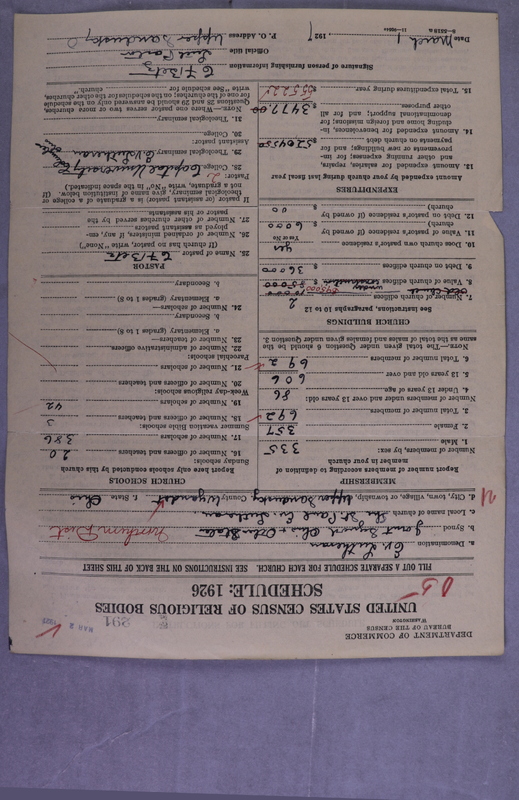 DEPARTMENT OF COMMERCE
BUREAU OF THE CENSUS
WASHINGTON
291
MAR 2 1927
UNITED STATES CENSUS OF RELIGIOUS BODIES
SCHEDULE: 1926
FILL OUT A SEPARATE SCHEDULE FOR EACH CHURCH. SEE INSTRUCTIONS ON THE BACK OF THIS SHEET
a. Denomination Ev. Lutheran
b. Synod Joint Synod Ohio & Other States
c. Local name of church The St. Paul Ev. Lutheran
d. City, town, village, or township, Upper Sandusky County Wyandot State Ohio
MEMBERSHIP
Report number of members according to definition of member in your church
Number of members, by sex:
1. Male 335
2. Female 357
3. Total number of members 692
Number of members under and over 13 years old:
4. Under 13 years of age 86
5. 13 years old and over 606
6. Total number of members 692
NOTE.—The total given under Question 6 should be the same as the total of males and females given under Question 3.
CHURCH BUILDINGS
See instructions, paragraphs 10 to 12
7. Number of church edifices 2
8. Value of church edifices $
9. Debt on church edifices $ 36000
10. Does church own pastor's residence yes
Yes or No
11. Value of pastor's residence (if owned by church) $ 6000
12. Debt on pastor's residence (if owned by church) $ 00
EXPENDITURES
Amount expended by your church during last fiscal year
13. Amount expended for salaries, repairs, and other running expenses; for improvements or new building; and for payments on church debt
14. Amount expended for benevolences, including home and foreign missions; for denominational support; and for all other purposes $ 3477.00
15. Total expenditures during year $ 55522
CHURCH SCHOOLS
Report here only schools conducted by this church
Sunday schools:
16. Number of officers and teachers 20
17. Number of scholars 386
Summer vacation Bible schools:
18. Number of officers and teachers 3
19. Number of scholars 42
Week-day religious schools:
20. Number of officers and teachers
21. Number of scholars
Parochial schools:
22. Number of administrative officers
23. Number of teachers—
a. Elementary (grades 1 to 8)
b. Secondary
24. Number of scholars—
a. Elementary (grades 1 to 8)
b. Secondary
PASTOR
25. Name of pastor
(If church has no pastor, write "None")
26. Number of ordained ministers, if any, employed as assistant pastors
27. Number of other churches served by the pastor or his assistants
If pastor (or assistant pastor) is a graduate of a college or theological seminary, give name of institution below. (If not a graduate, write "No" in the space indicated.)
Pastor:
28. College Capital University
29. Theological seminary Ev. Lutheran
Assistant pastor:
30. College
31. Theological seminary
NOTE.—Where pastor serves two or more churches, Questions 28 and 29 should be answered only on the schedule for one of the churches; on the schedules for the other churches, write "See schedule for church."
Signature of person furnishing information
Official title
P. O. Address Upper Sandusky O
Date March 1, 1927